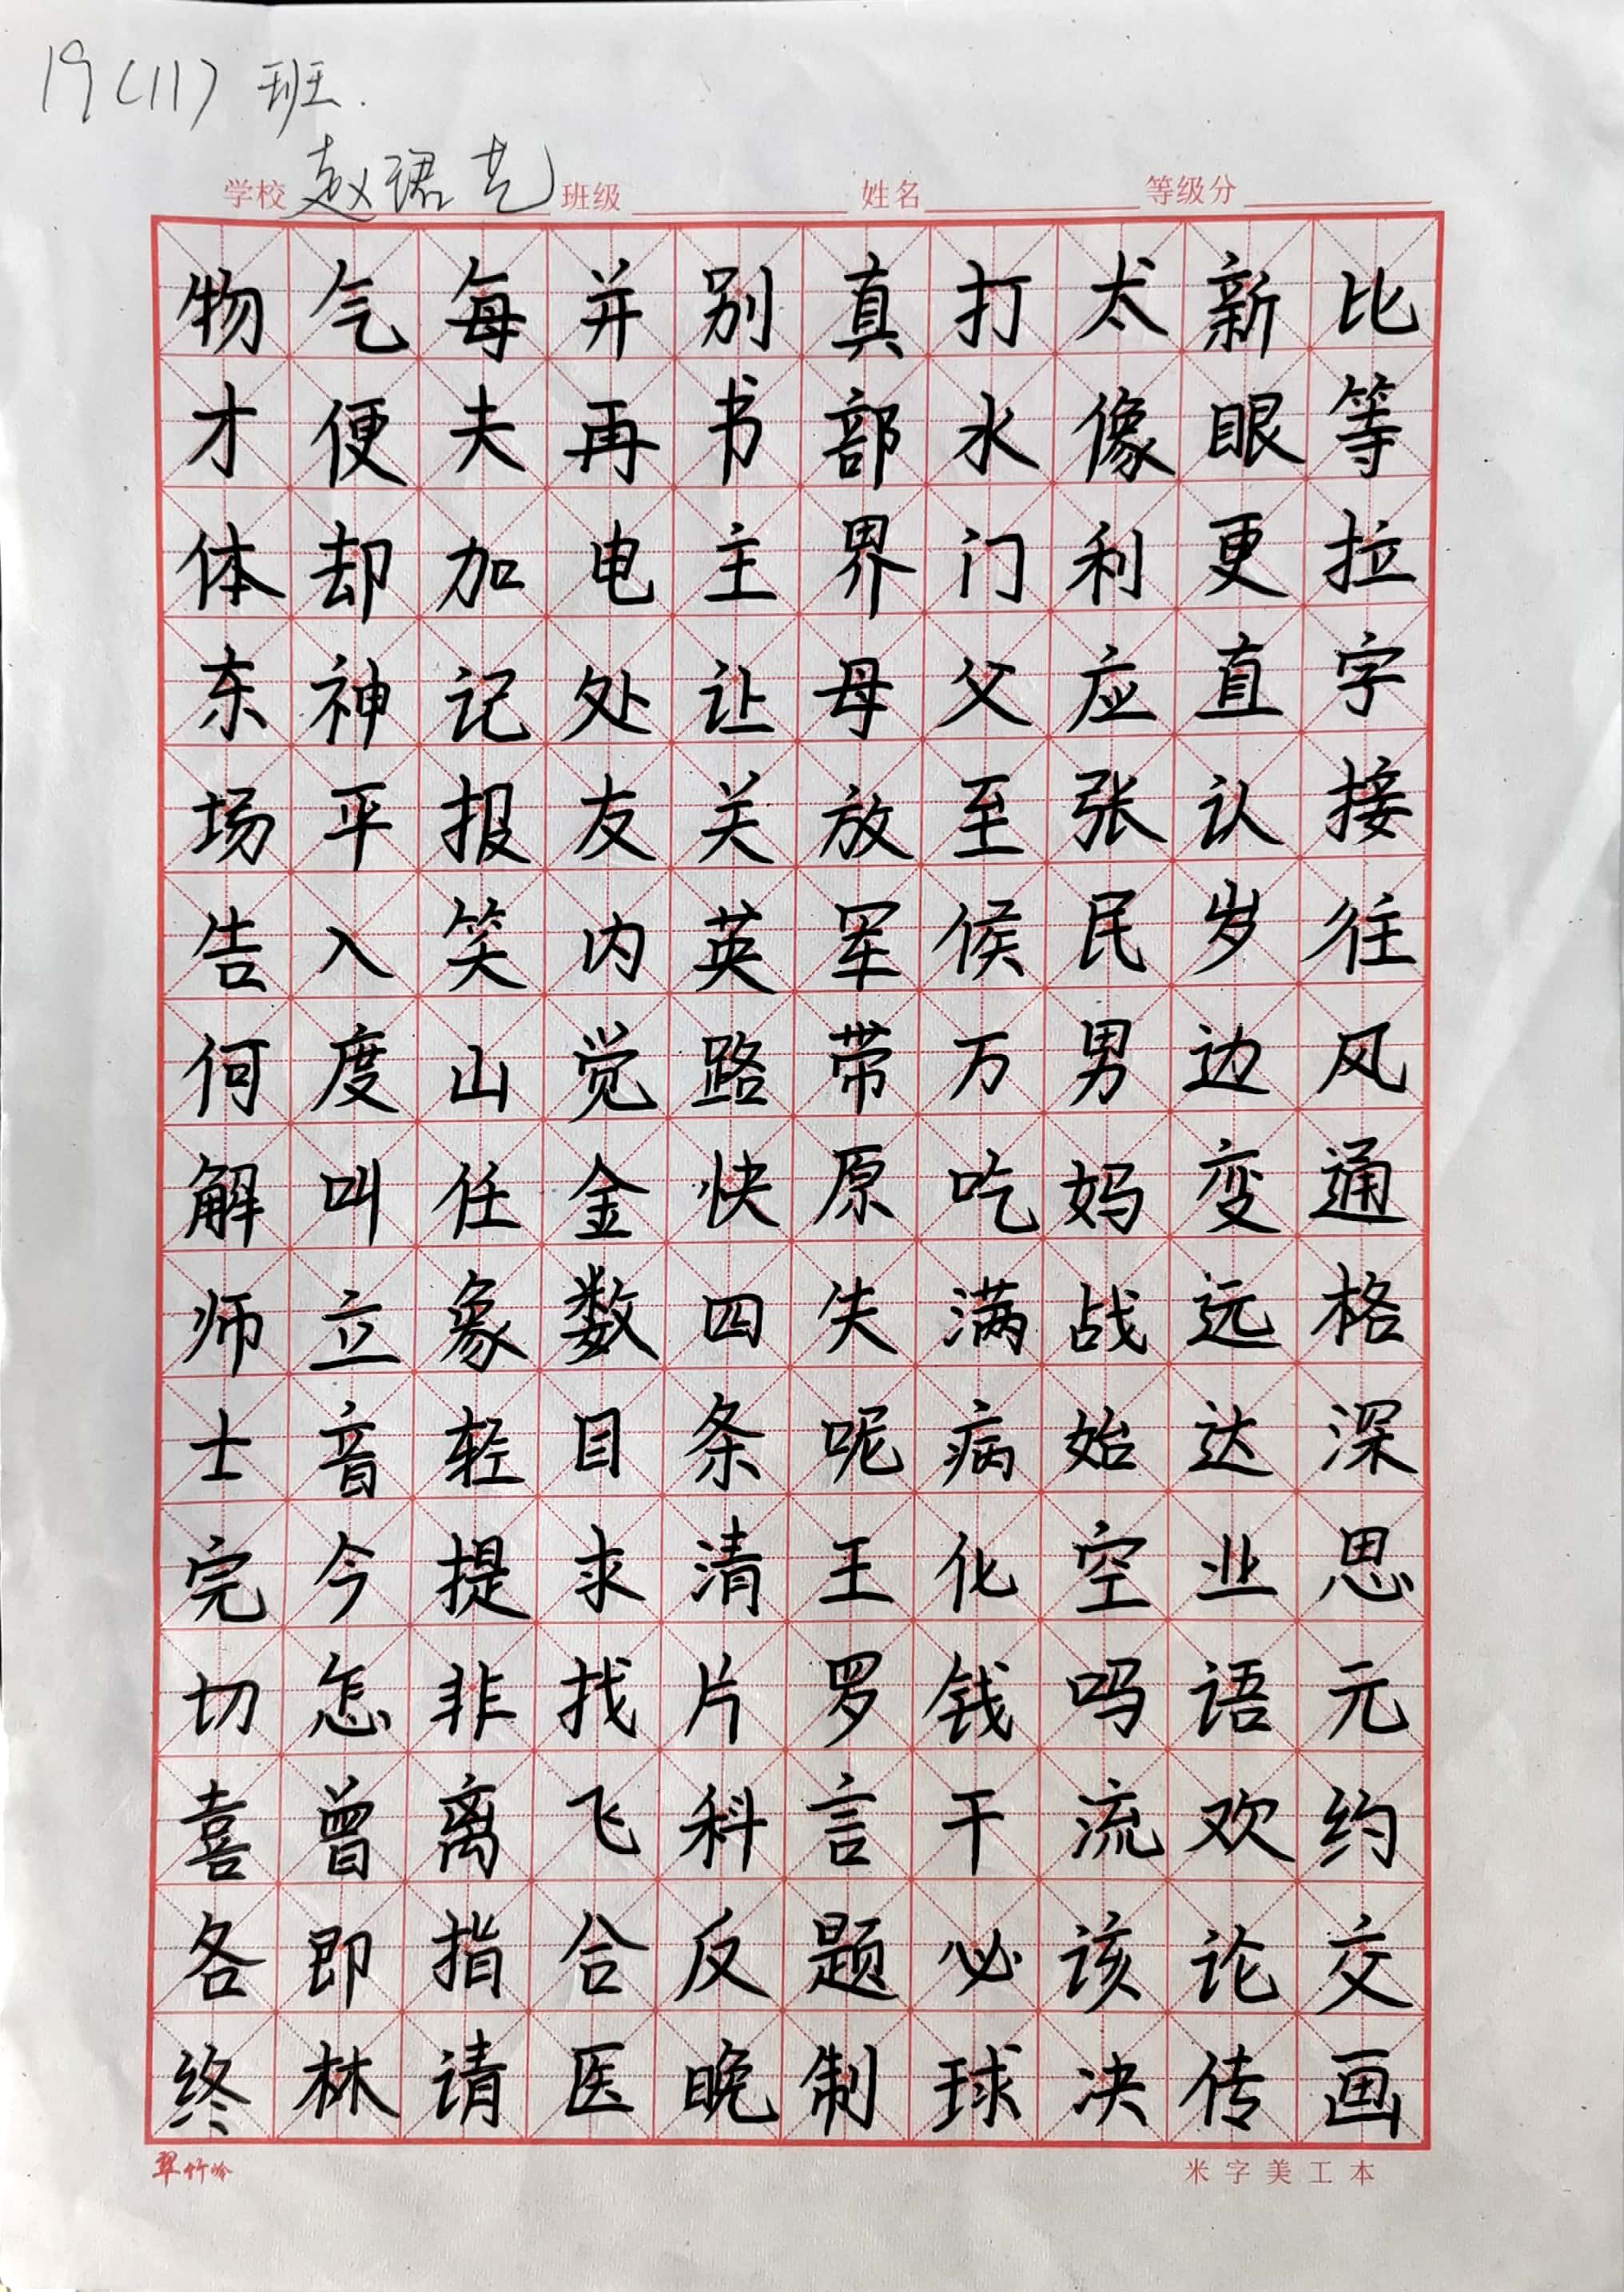 19(11)班.
学校 赵珺艺 班级 姓名 等级分
物气每并别真打太新比
才便夫再书部水像眼等
体却加电主界门利更拉
东神记处让母父应直字
场平报友关放至张认接
告入笑内英军候民岁往
何度山觉路带万男边风
解叫任金快原吃妈变通
师立象数四失满战远格
士音轻目条呢病始达深
完今提求清王化空业思
切怎非找片罗钱吗语元
喜曾离飞科言干流欢约
各即指合反题必该论交
终林请医晚制球决传画
翠竹岭 米字美工本